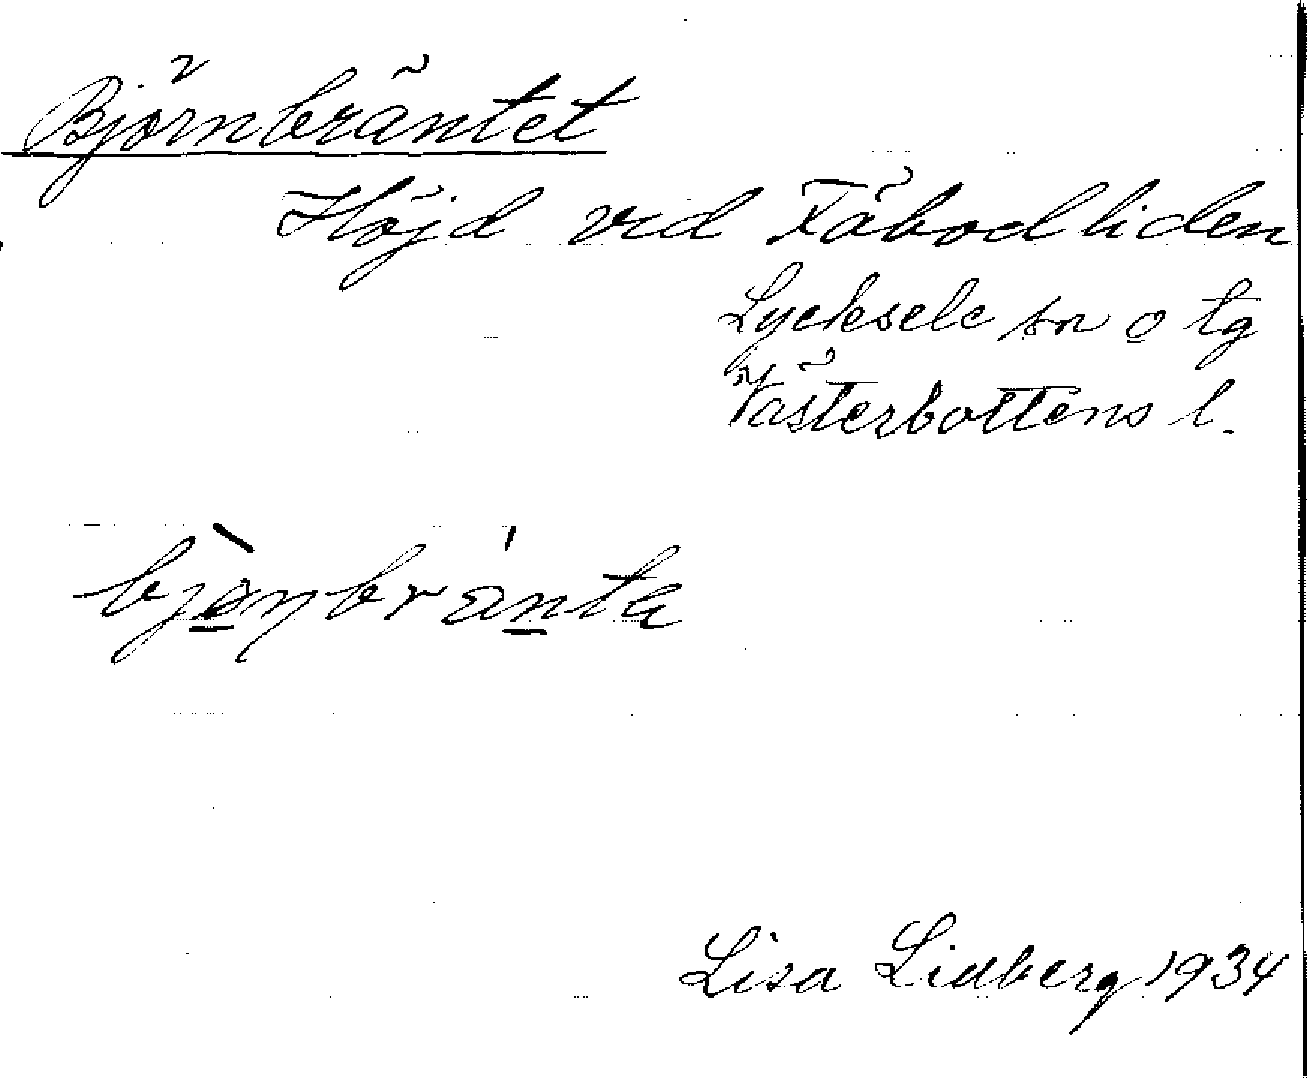 Björnbräntet
Höjd vid Fäbodliden
Lycksele sn o tg
Västerbottens l.
Lisa Lidberg 1934